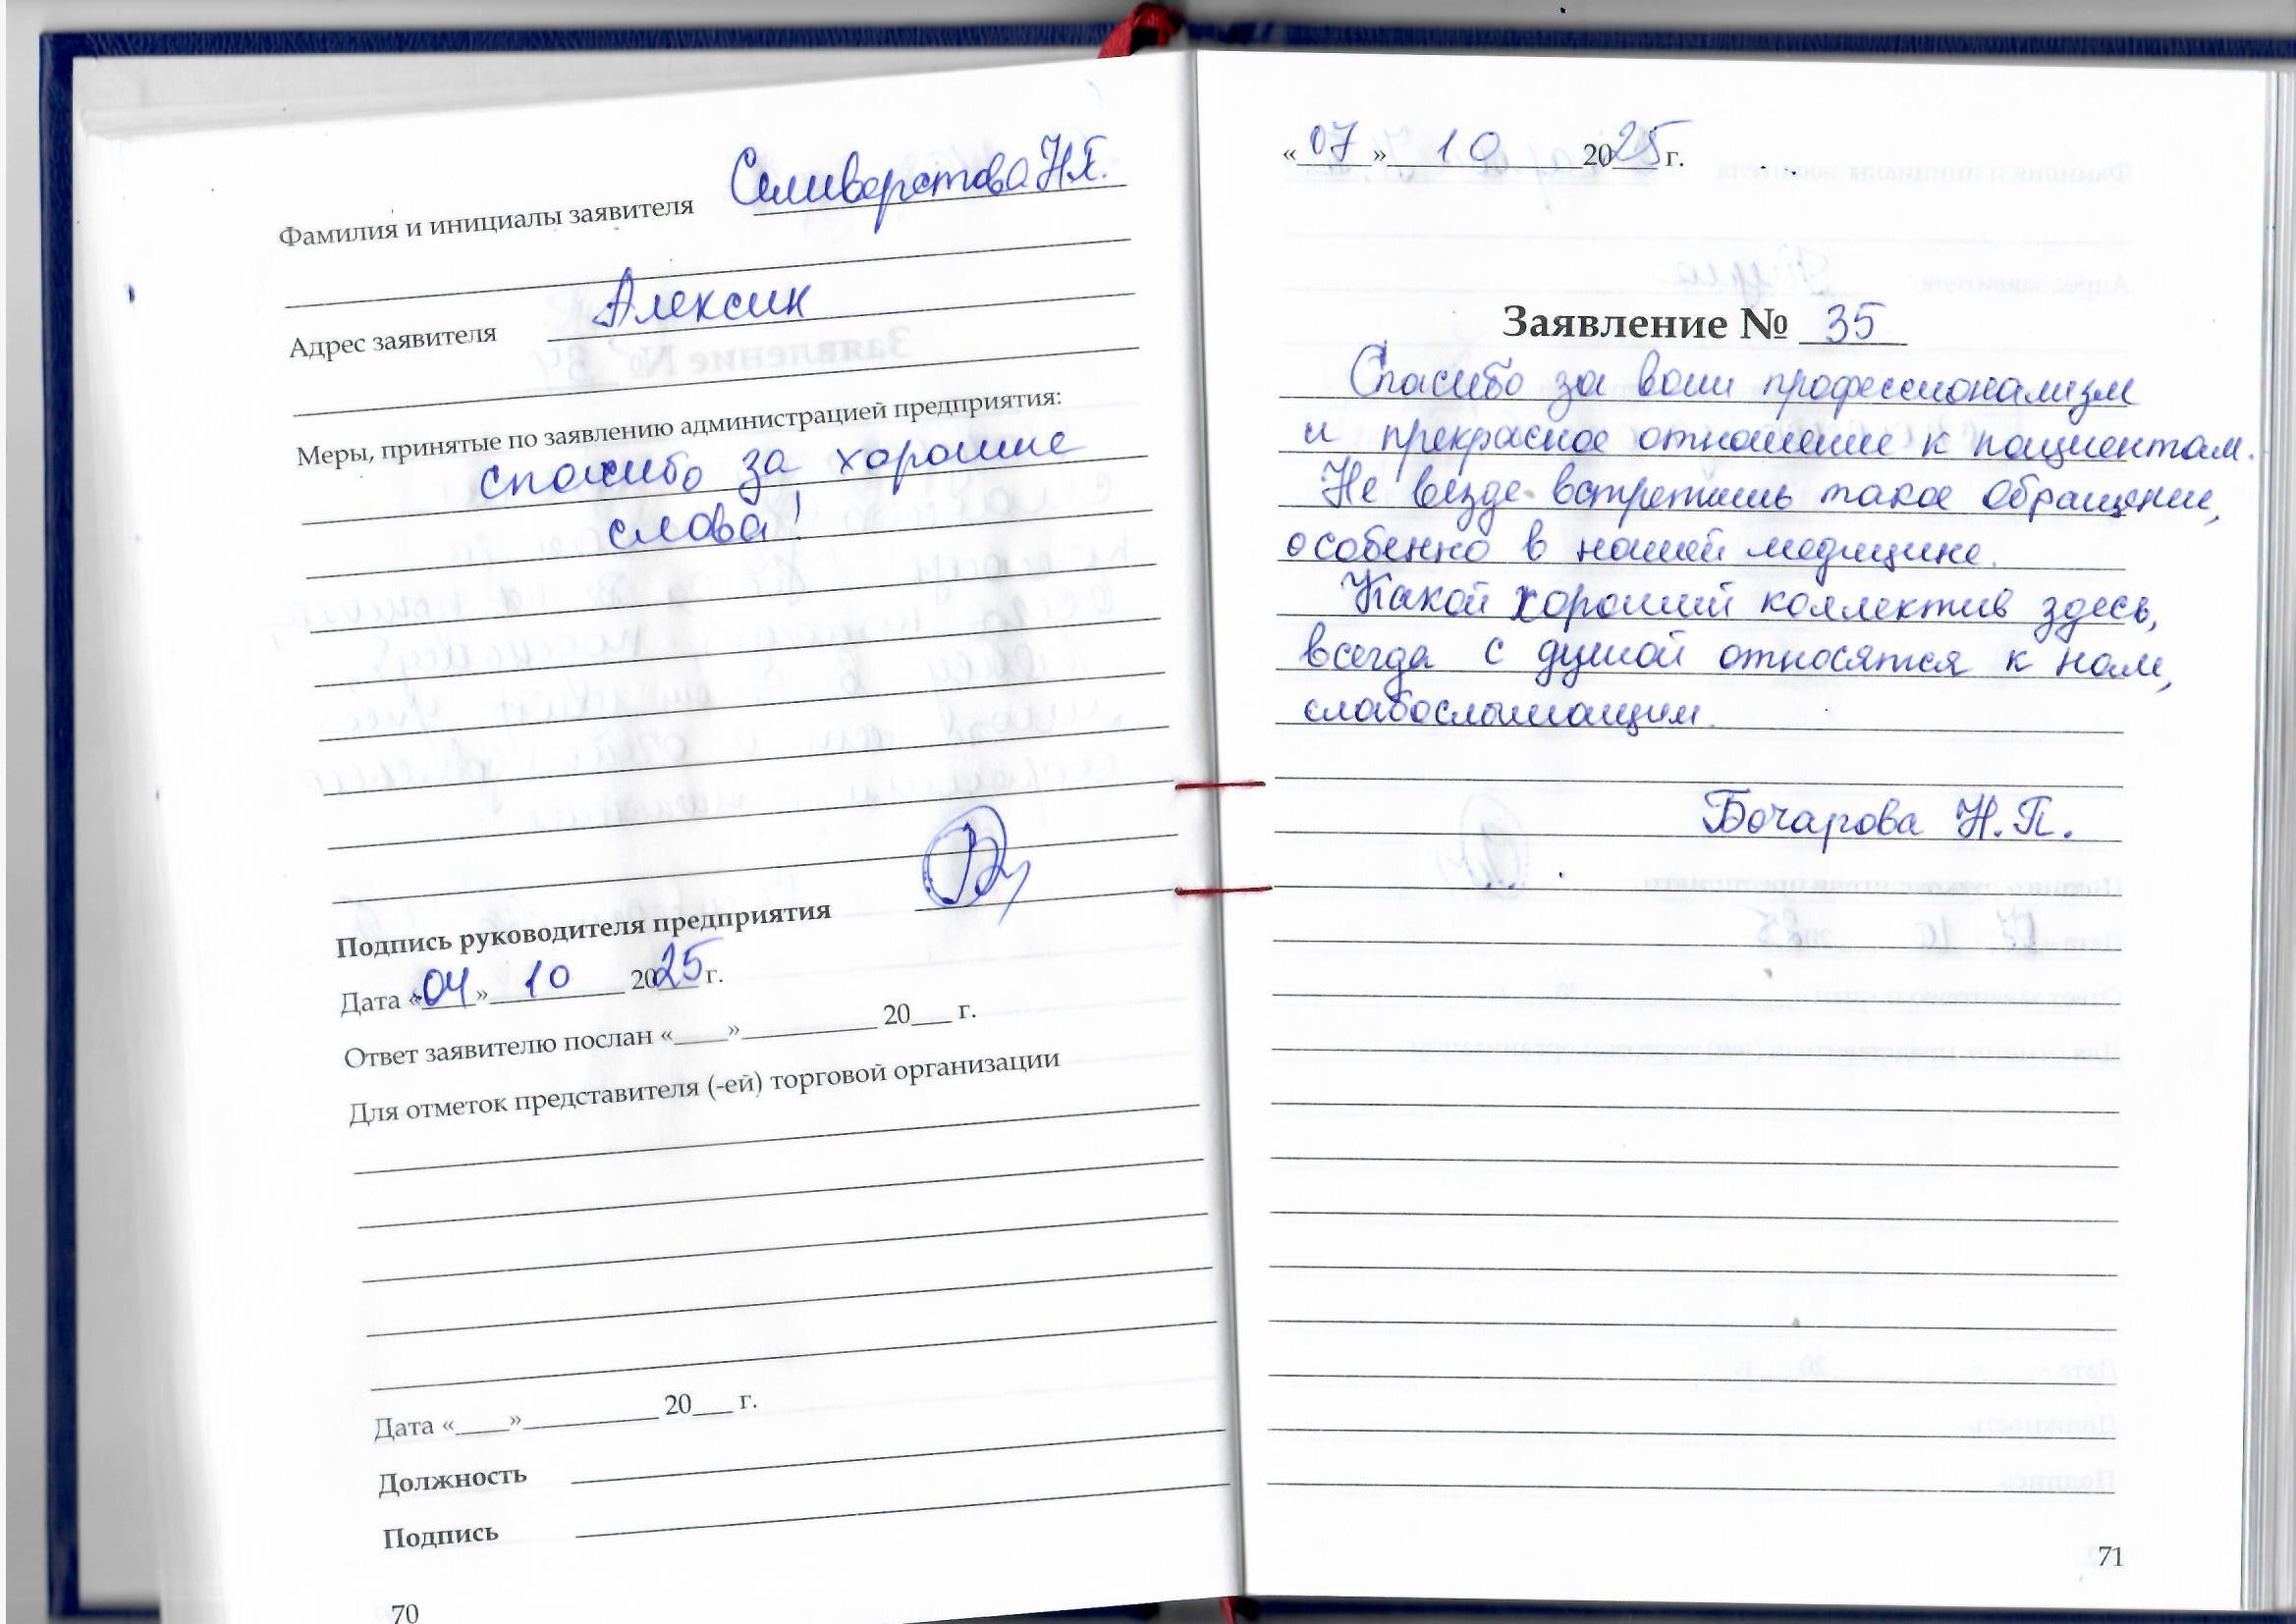 Фамилия и инициалы заявителя Селиверстова Н.Г.
Адрес заявителя Алексин
Меры, принятые по заявлению администрацией предприятия:
спасибо за хорошие
слова!
Подпись руководителя предприятия
Дата «04» 10 2025 г.
Ответ заявителю послан «____»__________ 20___ г.
Для отметок представителя (-ей) торговой организации
Дата «____»__________ 20___ г.
Должность
Подпись
70
«07» 10 2025 г.
Заявление № 35
Спасибо за ваш профессионализм
и прекрасное отношение к пациентам.
Не везде встретишь такое обращение,
особенно в нашей медицине.
Какой хороший коллектив здесь,
всегда с душой относятся к нам,
слабослышащим.
Бочарова Н.П.
71